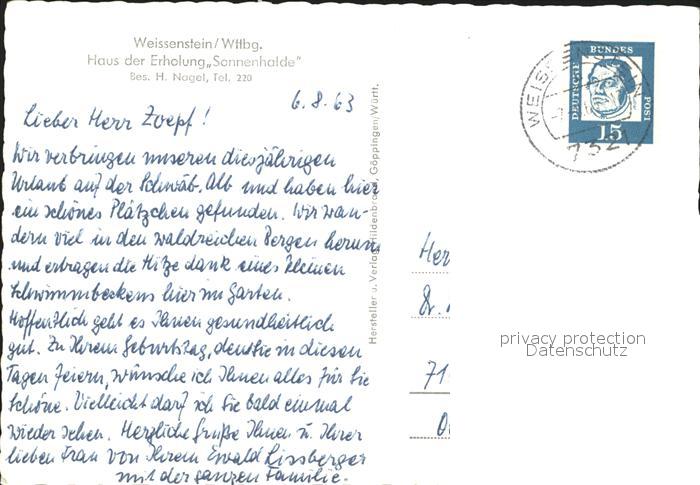 Weissenstein/Wttbg.
Haus der Erholung „Sonnenhalde"
Bes. H. Nagel, Tel. 220
6.8.63
Lieber Herr Zoepf!
Wir verbringen unseren diesjährigen
Urlaub auf der Schwäb. Alb und haben hier
ein schönes Plätzchen gefunden. Wir wan-
dern viel in den waldreichen Bergen herum
und ertragen die Hitze dank eines kleinen
Schwimmbeckens hier im Garten.
Hoffentlich geht es Ihnen gesundheitlich
gut. Zu Ihrem Geburtstag, den Sie in diesen
Tagen feiern, wünsche ich Ihnen alles für Sie
Schöne. Vielleicht darf ich Sie bald einmal
wieder sehen. Herzliche Grüße Ihnen u. Ihrer
lieben Frau von Ihrem Ewald Lissberger
mit der ganzen Familie.
Hersteller u. Verlag Hildenbrand, Göppingen/Württ.
DEUTSCHE BUNDES POST
15
WEISSENSTEIN
7321
Her
Dr.
71
privacy protection
Datenschutz